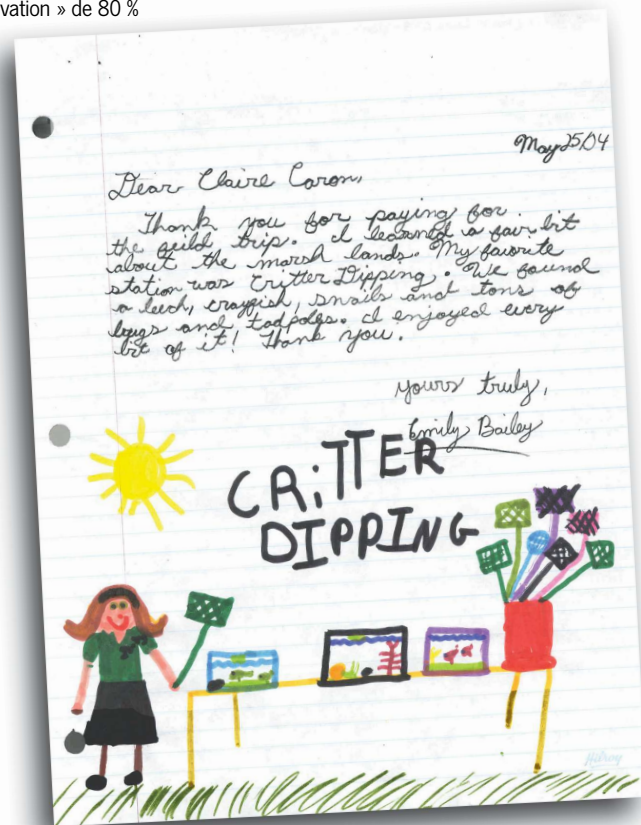 vation » de 80 %
May 25/04
Dear Claire Caron,
Thank you for paying for
the feild trip. I learned a fair bit
about the marsh lands. My favorite
station was Critter Dipping. We found
a leech, crayfish, snails and tons of
bugs and tadpoles. I enjoyed every
bit of it! Thank you.
yours truly,
Emily Bailey
CRiTTER
DIPPING
Hilroy